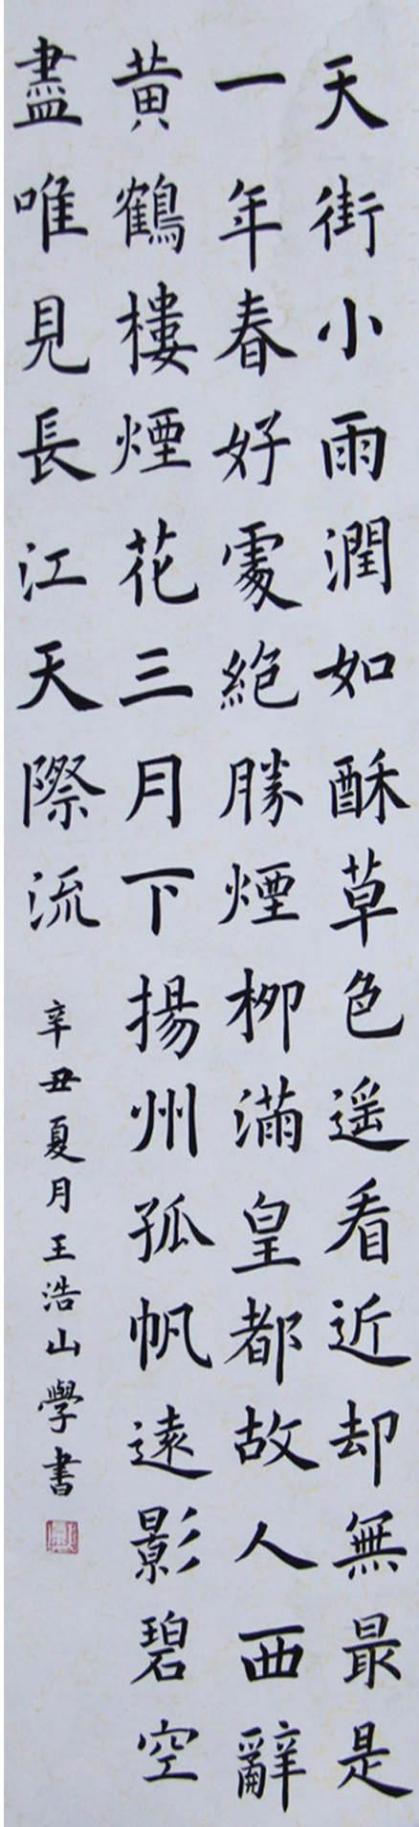 天街小雨潤如酥草色遥看近却無最是
一年春好處絶勝煙柳滿皇都故人西辭
黄鶴樓煙花三月下揚州孤帆遠影碧空
盡唯見長江天際流
辛丑夏月王浩山學書